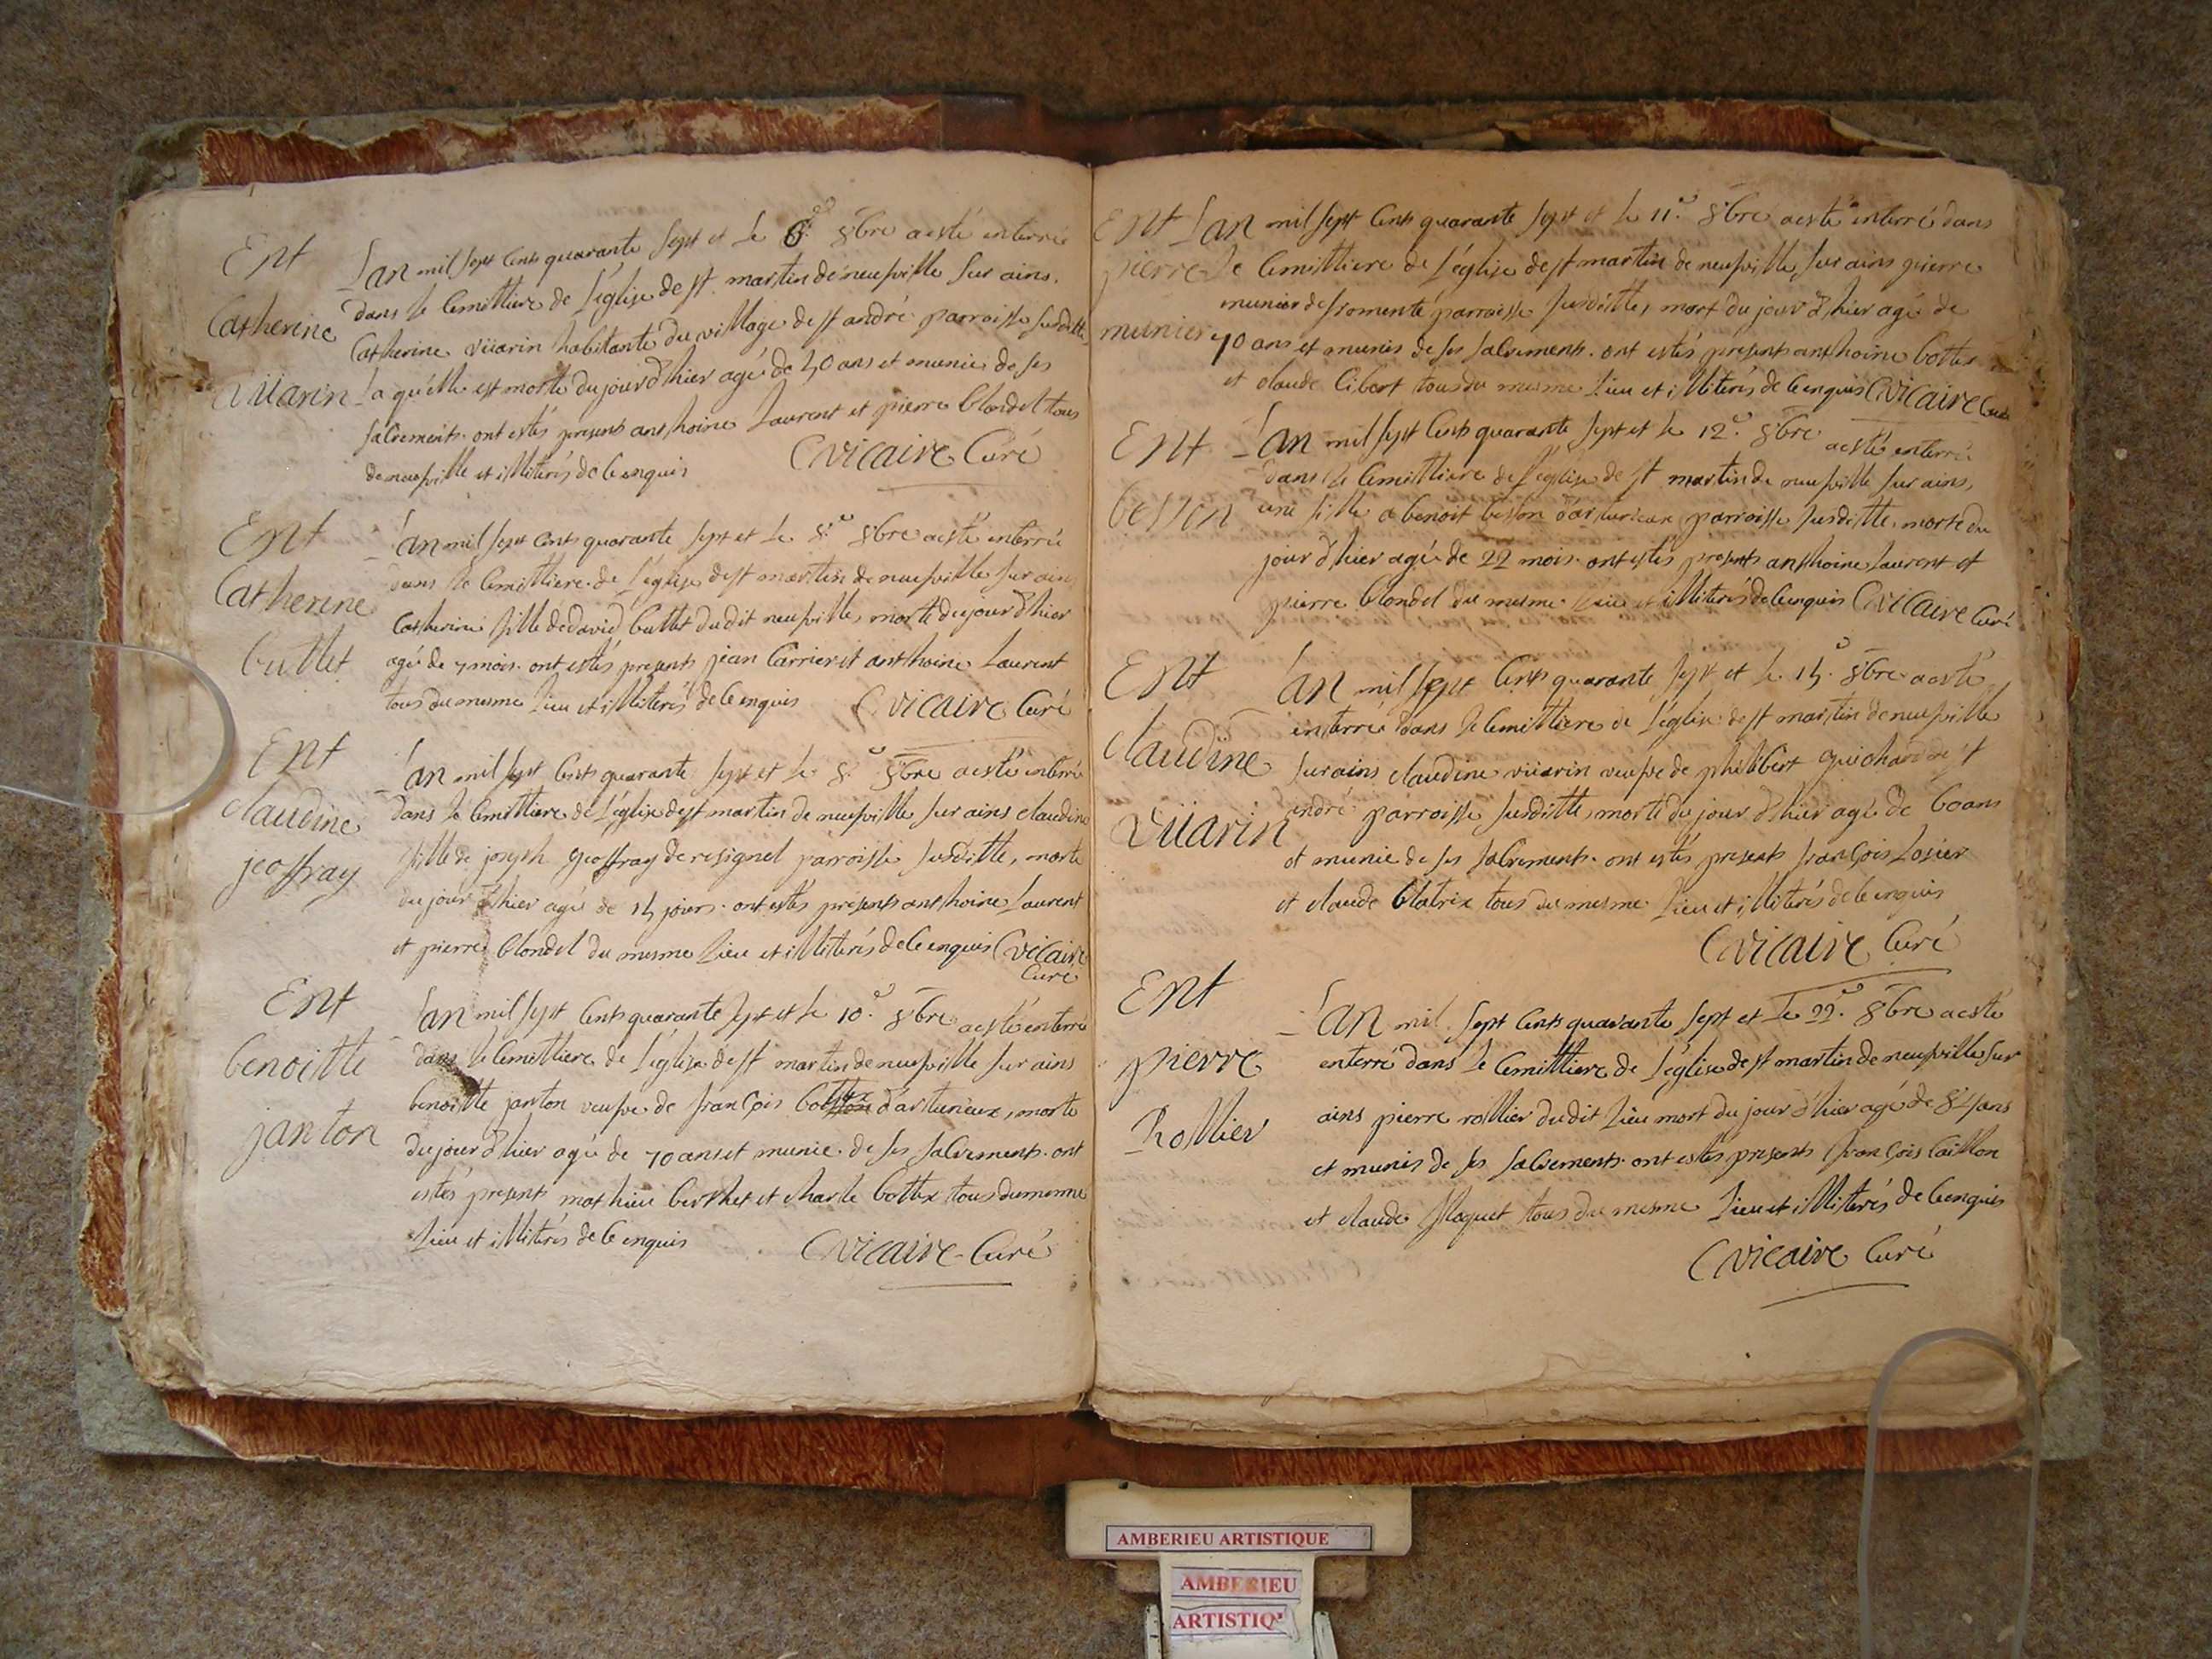 Ent
Catherine
vüarin
L'an mil sept cents quarante sept et le 6.e 8bre a esté enterrée
dans le cemittiere de l'église de st martin de neufville sur ains,
Catherine vüarin habitante du village de st andré parroisse susditte
la quelle est morte du jour d'hier agée de 40 ans et munie de ses
sacrements. ont estés presents anthoine Laurent et pierre blondel tous
de neufville et illiterés de ce enquis Cvicaire Curé
Ent
Catherine
buttet
L'an mil sept cents quarante sept et le 8.e 8bre a esté enterrée
dans le cemittiere de l'église de st martin de neufville sur ains
Catherine fille de david buttet dudit neufville, morte du jour d'hier
agée de 7 mois. ont estés presents jean Carrier et anthoine Laurent
tous du mesme lieu et illiterés de ce enquis Cvicaire Curé
Ent
claudine
jeoffray
L'an mil sept cents quarante sept et le 8.e 8bre a esté enterré
dans le cemittiere de l'église de st martin de neufville sur ains claudine
fille de joseph geoffray de resignel parroisse susditte, morte
du jour d'hier agée de 14 jours. ont estés presents anthoine Laurent
et pierre blondel du mesme lieu et illiterés de ce enquis Cvicaire
Curé
Ent
benoitte
janton
L'an mil sept cents quarante sept et le 10.e 8bre a esté enterré
dans le cemittiere de l'église de st martin de neufville sur ains
benoitte janton veufve de françois d'arturieux, morte
du jour d'hier agée de 70 ans et munie de ses sacrements. ont
estés presents mathieu berthet et charle bottex tous du mesme
lieu et illiterés de ce enquis Cvicaire Curé
Ent
pierre
munier
L'an mil sept cents quarante sept et le 11.e 8bre a esté enterré dans
le cemittiere de l'église de st martin de neufville sur ains pierre
munier de fromente parroisse susditte, mort du jour d'hier agé de
70 ans et munis de ses sacrements. ont estés presents anthoine bottex
et claude Cibert tous du mesme lieu et illiterés de ce enquis Cvicaire Curé
Ent
besson
L'an mil sept cents quarante sept et le 12.e 8bre a esté enterré
dans le cemittiere de l'église de st martin de neufville sur ains,
une fille a benoit besson d'arturieux parroisse susditte, morte du
jour d'hier agée de 22 mois. ont estés presents anthoine Laurent et
pierre blondel du mesme lieu et illiterés de ce enquis Cvicaire Curé
Ent
claudine
vüarin
L'an mil sept cents quarante sept et le 14.e 8bre a esté
enterrée dans le cemittiere de l'église de st martin de neufville
sur ains claudine vüarin veufve de philibert guichard de st
andré parroisse susditte, morte du jour d'hier agée de 60 ans
et munie de ses sacrements. ont estés presents françois Losier
et claude blatrix tous du mesme lieu et illiterés de ce enquis
Cvicaire Curé
Ent
pierre
Rollier
L'an mil sept cents quarante sept et le 22.e 8bre a esté
enterré dans le cemittiere de l'église de st martin de neufville sur
ains pierre rollier dudit lieu mort du jour d'hier agé de 84 ans
et munis de ses sacrements. ont estés presents françois Caillon
et claude floquet tous du mesme lieu et illiterés de ce enquis
Cvicaire Curé
AMBERIEU ARTISTIQUE
AMBERIEU
ARTISTIQ'